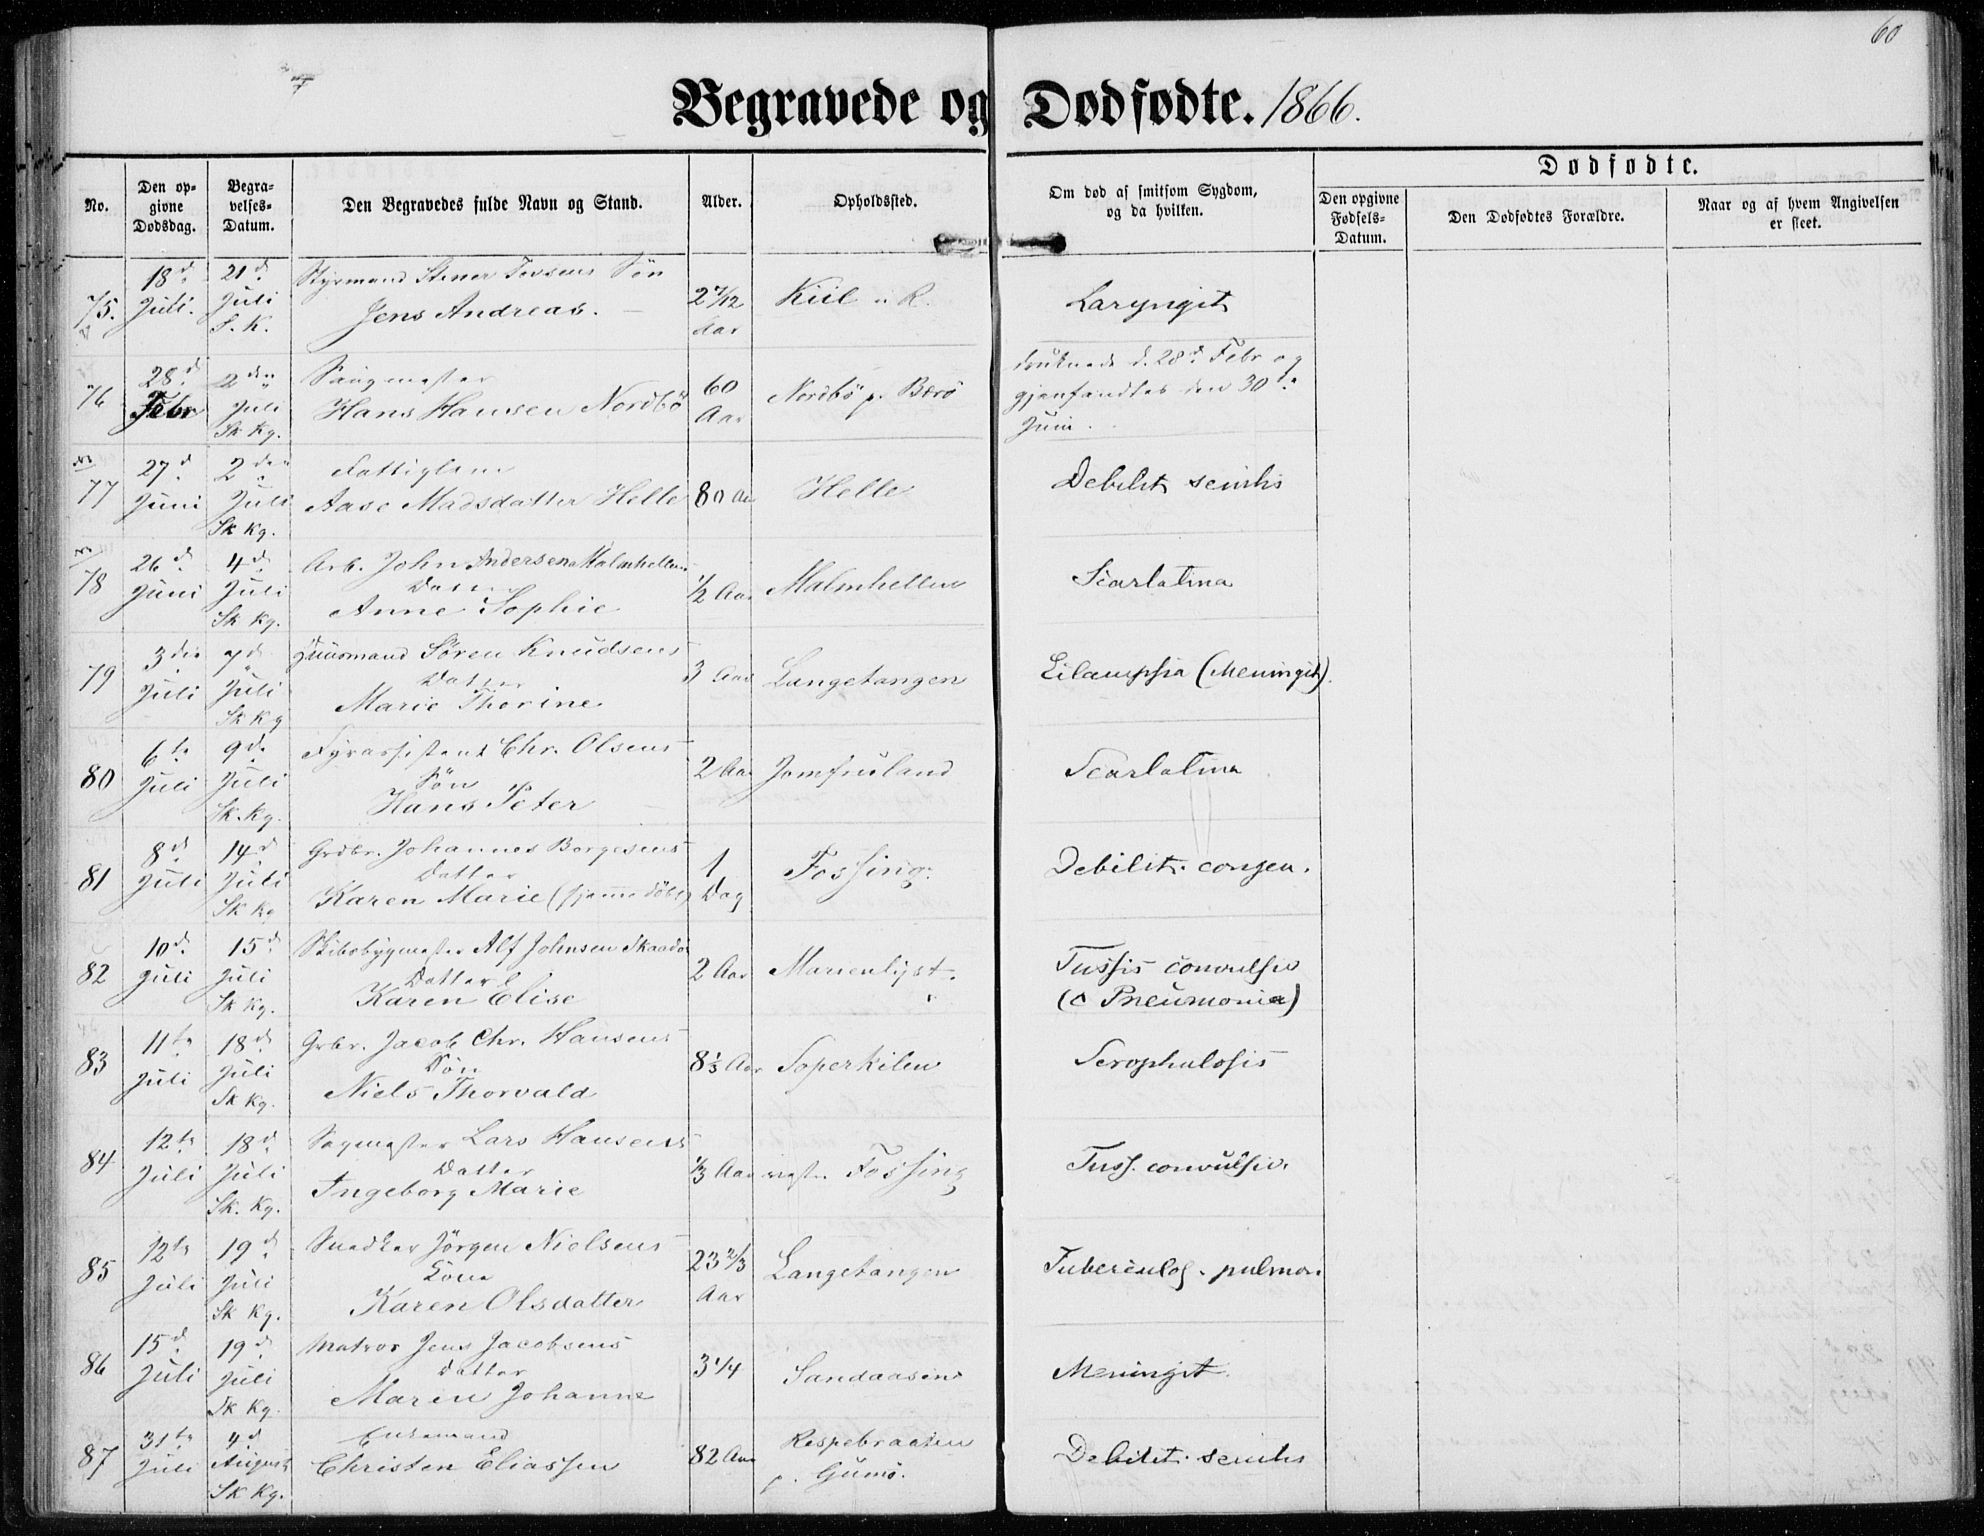 60
Begravede og Dødfødte. 1866.
No.
Den op-
givne
Dødsdag.
Begra-
velses-
Datum.
Den Begravedes fulde Navn og Stand.
Alder.
Opholdssted.
Om død af smitsom Sygdom,
og da hvilken.
Dødfødte.
Den opgivne
Fødsels-
Datum.
Den Dødfødtes Forældre.
Naar og af hvem Angivelsen
er skeet.
75. 18d Juli. 21d Juli S. K. Styrmand Stener Søn
Jens Andreas. 2 7/12 Aar Kiil Laryngit
76 28d Febr 2den Juli Sk Kg. Saugmester
Hans Hansen Nordbö 60 Aar Nordbö p. Bærö druknede d. 28d Febr og
gjenfandtes den 30te
Juni.
77 27d Juni 2den Juli Sk Kg. Fattiglem
Aase Madsdatter Helle 80 Aar Helle Debilit senilis
78 26d Juni 4d Juli Sk Kg. Arb. John Andersen Malmhellen
Datter
Anne Sophie 1/2 Aar Malmhellen Scarlatina
79 3die Juli 7d Juli Sk Kg Huusmand Sören Knudsens
Datter
Marie Thorine 3 Aar Langetangen Eilampsia (Meningit).
80 6te Juli 9de Juli Sk. Kg. Fyrassistent Chr. Olsens
Sön
Hans Peter 2 Aar Jomfruland Scarlatina
81 8d Juli 14d Juli Sk Kg Grdbr. Johannes Borgesens
Datter
Karen Marie (hjemmedöbt) 1 Dag Fossing. Debilit. congen.
82 10d Juli 15d Juli Sk Kg. Skibsbygmester Alf Johnsen Skaadø
Datter
Karen Elise 2 Aar Marienlyst. Tussis convulsiv
(c Pneumonia)
83 11te Juli 18d Juli Sk Kg. Grbr. Jacob Chr. Hansens
Sön
Niels Thorvald 8 1/3 Aar Soperkilen Scrophulosis
84 12te Juli 18d Juli Sk. Kg. Sagmester Lars Hansens
Datter
Ingeborg Marie 1/3 Aar Fossing Tuss. convulsiv.
85 12te Juli 19d Juli Sk Kg. Snedker Jörgen Nielsens
Kone
Karen Olsdatter 23 2/3 Aar Langetangen Tuberculos. pulmon.
86 15d Juli 19d Juli Sk Kg. Matros Jens Jacobsens
Datter
Maren Johanne 3 1/4 Sandaasen Meningit.
87 31te Juli 4d August Sk Kg. Enkemand
Christen Eliassen 82 Aar Respebraaten
p. Gumø. Debilit. senilis